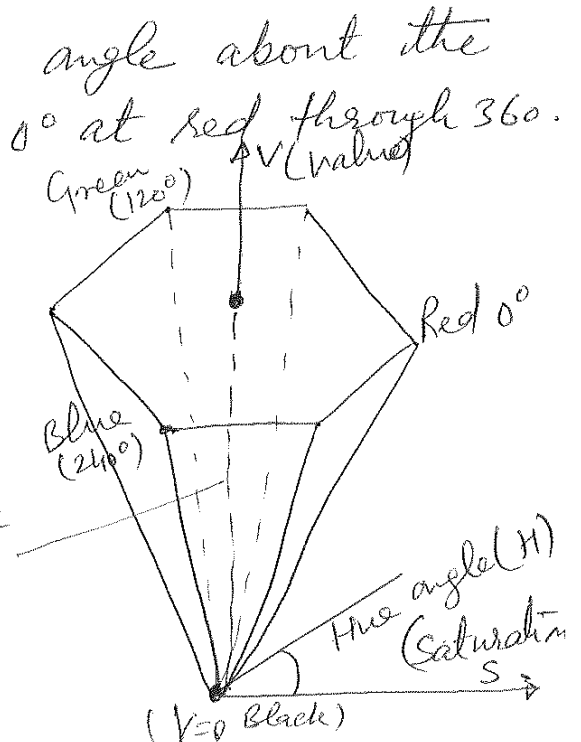 angle about the
0° at red through 360.
V (value)
Green
(120°)
Red 0°
Blue
(240°)
Hue angle (H)
(Saturation
S
(V=0 Black)